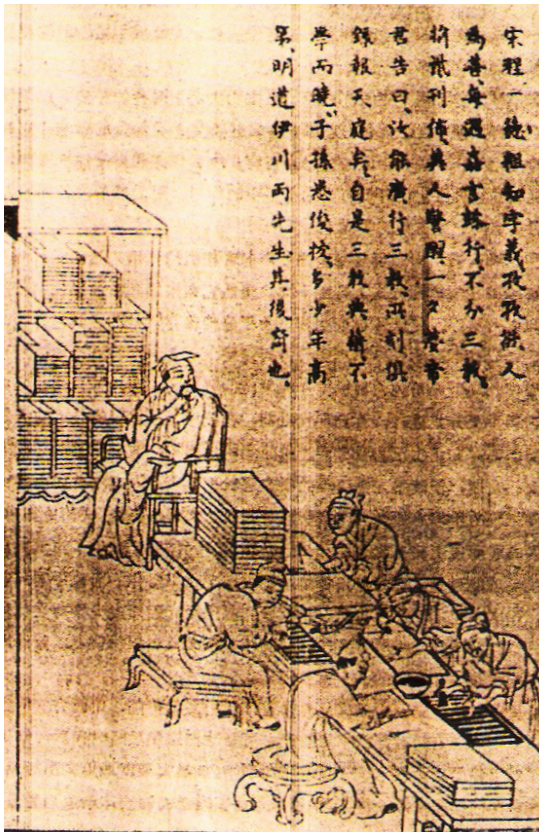 宋程一德粗知字義孜孜
爲善每遇嘉言懿行不分三教
捐貲刊傳與人警醒一夕帝
君告曰汝能廣行三教所刻俱
錄報天庭矣自是三教典籍不
學而曉子孫悉俊拔多少年高
第明道伊川兩先生其後裔也